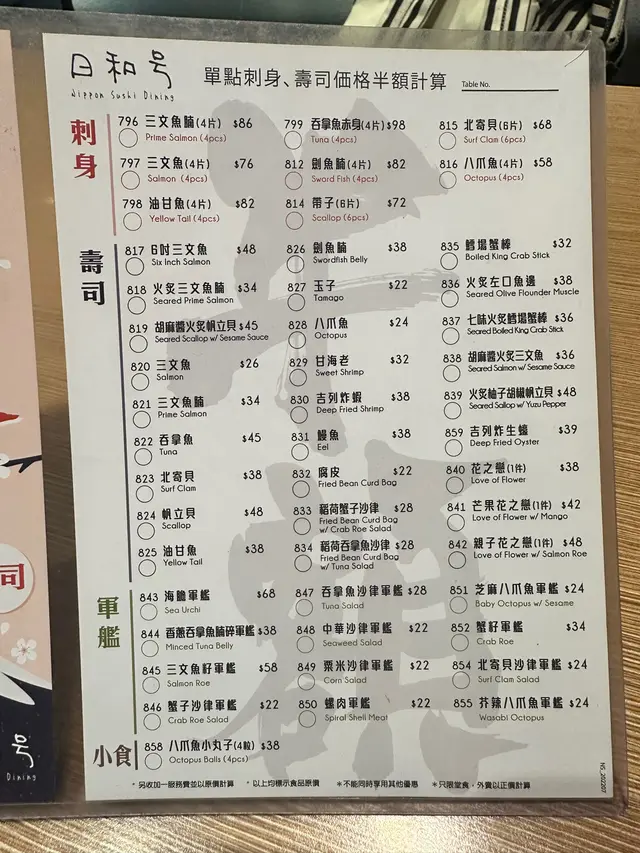 日和号
Nippon Sushi Dining
單點刺身、壽司価格半額計算
Table No.
刺身
796 三文魚腩(4片) $86
Prime Salmon (4pcs)
797 三文魚(4片) $76
Salmon (4pcs)
798 油甘魚(4片) $82
Yellow Tail (4pcs)
799 吞拿魚赤身(4片) $98
Tuna (4pcs)
812 劍魚腩(4片) $82
Sword Fish (4pcs)
814 帶子(6片) $72
Scallop (6pcs)
815 北寄貝(6片) $68
Surf Clam (6pcs)
816 八爪魚(4片) $58
Octopus (4pcs)
壽司
817 6吋三文魚 $48
Six Inch Salmon
818 火炙三文魚腩 $34
Seared Prime Salmon
819 胡麻醬火炙帆立貝 $45
Seared Scallop w/ Sesame Sauce
820 三文魚 $26
Salmon
821 三文魚腩 $34
Prime Salmon
822 吞拿魚 $45
Tuna
823 北寄貝 $38
Surf Clam
824 帆立貝 $48
Scallop
825 油甘魚 $38
Yellow Tail
826 劍魚腩 $38
Swordfish Belly
827 玉子 $22
Tamago
828 八爪魚 $24
Octopus
829 甘海老 $32
Sweet Shrimp
830 吉列炸蝦 $38
Deep Fried Shrimp
831 鰻魚 $38
Eel
832 腐皮 $22
Fried Bean Curd Bag
833 稻荷蟹子沙律 $28
Fried Bean Curd Bag
w/ Crab Roe Salad
834 稻荷吞拿魚沙律 $28
Fried Bean Curd Bag
w/ Tuna Salad
835 鱈場蟹棒 $32
Boiled King Crab Stick
836 火炙左口魚邊 $38
Seared Olive Flounder Muscle
837 七味火炙鱈場蟹棒 $36
Seared Boiled King Crab Stick
838 胡麻醬火炙三文魚 $36
Seared Salmon w/ Sesame Sauce
839 火炙柚子胡椒帆立貝 $48
Seared Sallop w/ Yuzu Pepper
859 吉列炸生蠔 $39
Deep Fried Oyster
840 花之戀(1件) $38
Love of Flower
841 芒果花之戀(1件) $42
Love of Flower w/ Mango
842 親子花之戀(1件) $48
Love of Flower w/ Salmon Roe
軍艦
843 海膽軍艦 $68
Sea Urchi
844 香蔥吞拿魚腩碎軍艦 $38
Minced Tuna Belly
845 三文魚籽軍艦 $58
Salmon Roe
846 蟹子沙律軍艦 $22
Crab Roe Salad
847 吞拿魚沙律軍艦 $28
Tuna Salad
848 中華沙律軍艦 $22
Seaweed Salad
849 粟米沙律軍艦 $22
Corn Salad
850 螺肉軍艦 $22
Spiral Shell Meat
851 芝麻八爪魚軍艦 $24
Baby Octopus w/ Sesame
852 蟹籽軍艦 $34
Crab Roe
854 北寄貝沙律軍艦 $24
Surf Clam Salad
855 芥辣八爪魚軍艦 $24
Wasabi Octopus
小食
858 八爪魚小丸子(4粒) $38
Octopus Balls (4pcs)
* 另收加一服務費並以原價計算 * 以上均標示食品原價 *不能同時享用其他優惠 *只限堂食，外賣以正價計算
NS_202207
半額
司
号
Dining